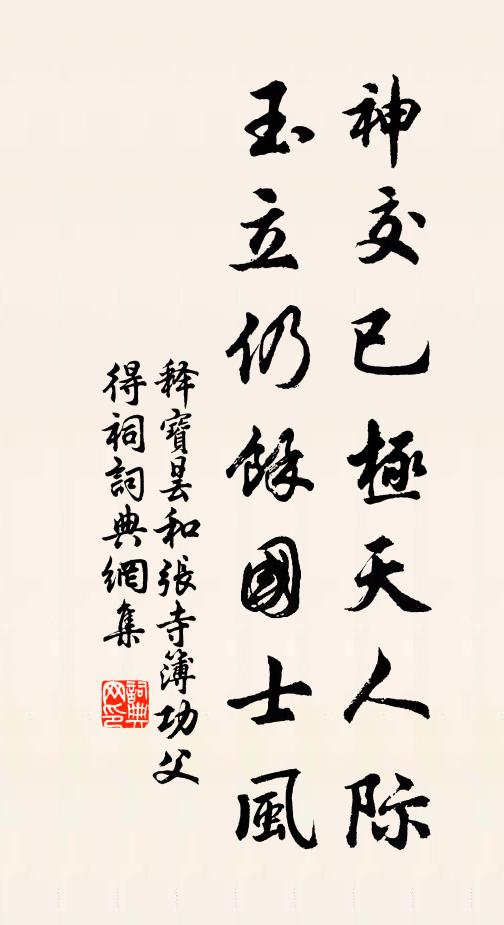 神交已極天人际
玉立仍餘國士風
释寶昙和張寺簿功父
得祠詞典網集
詞典网印